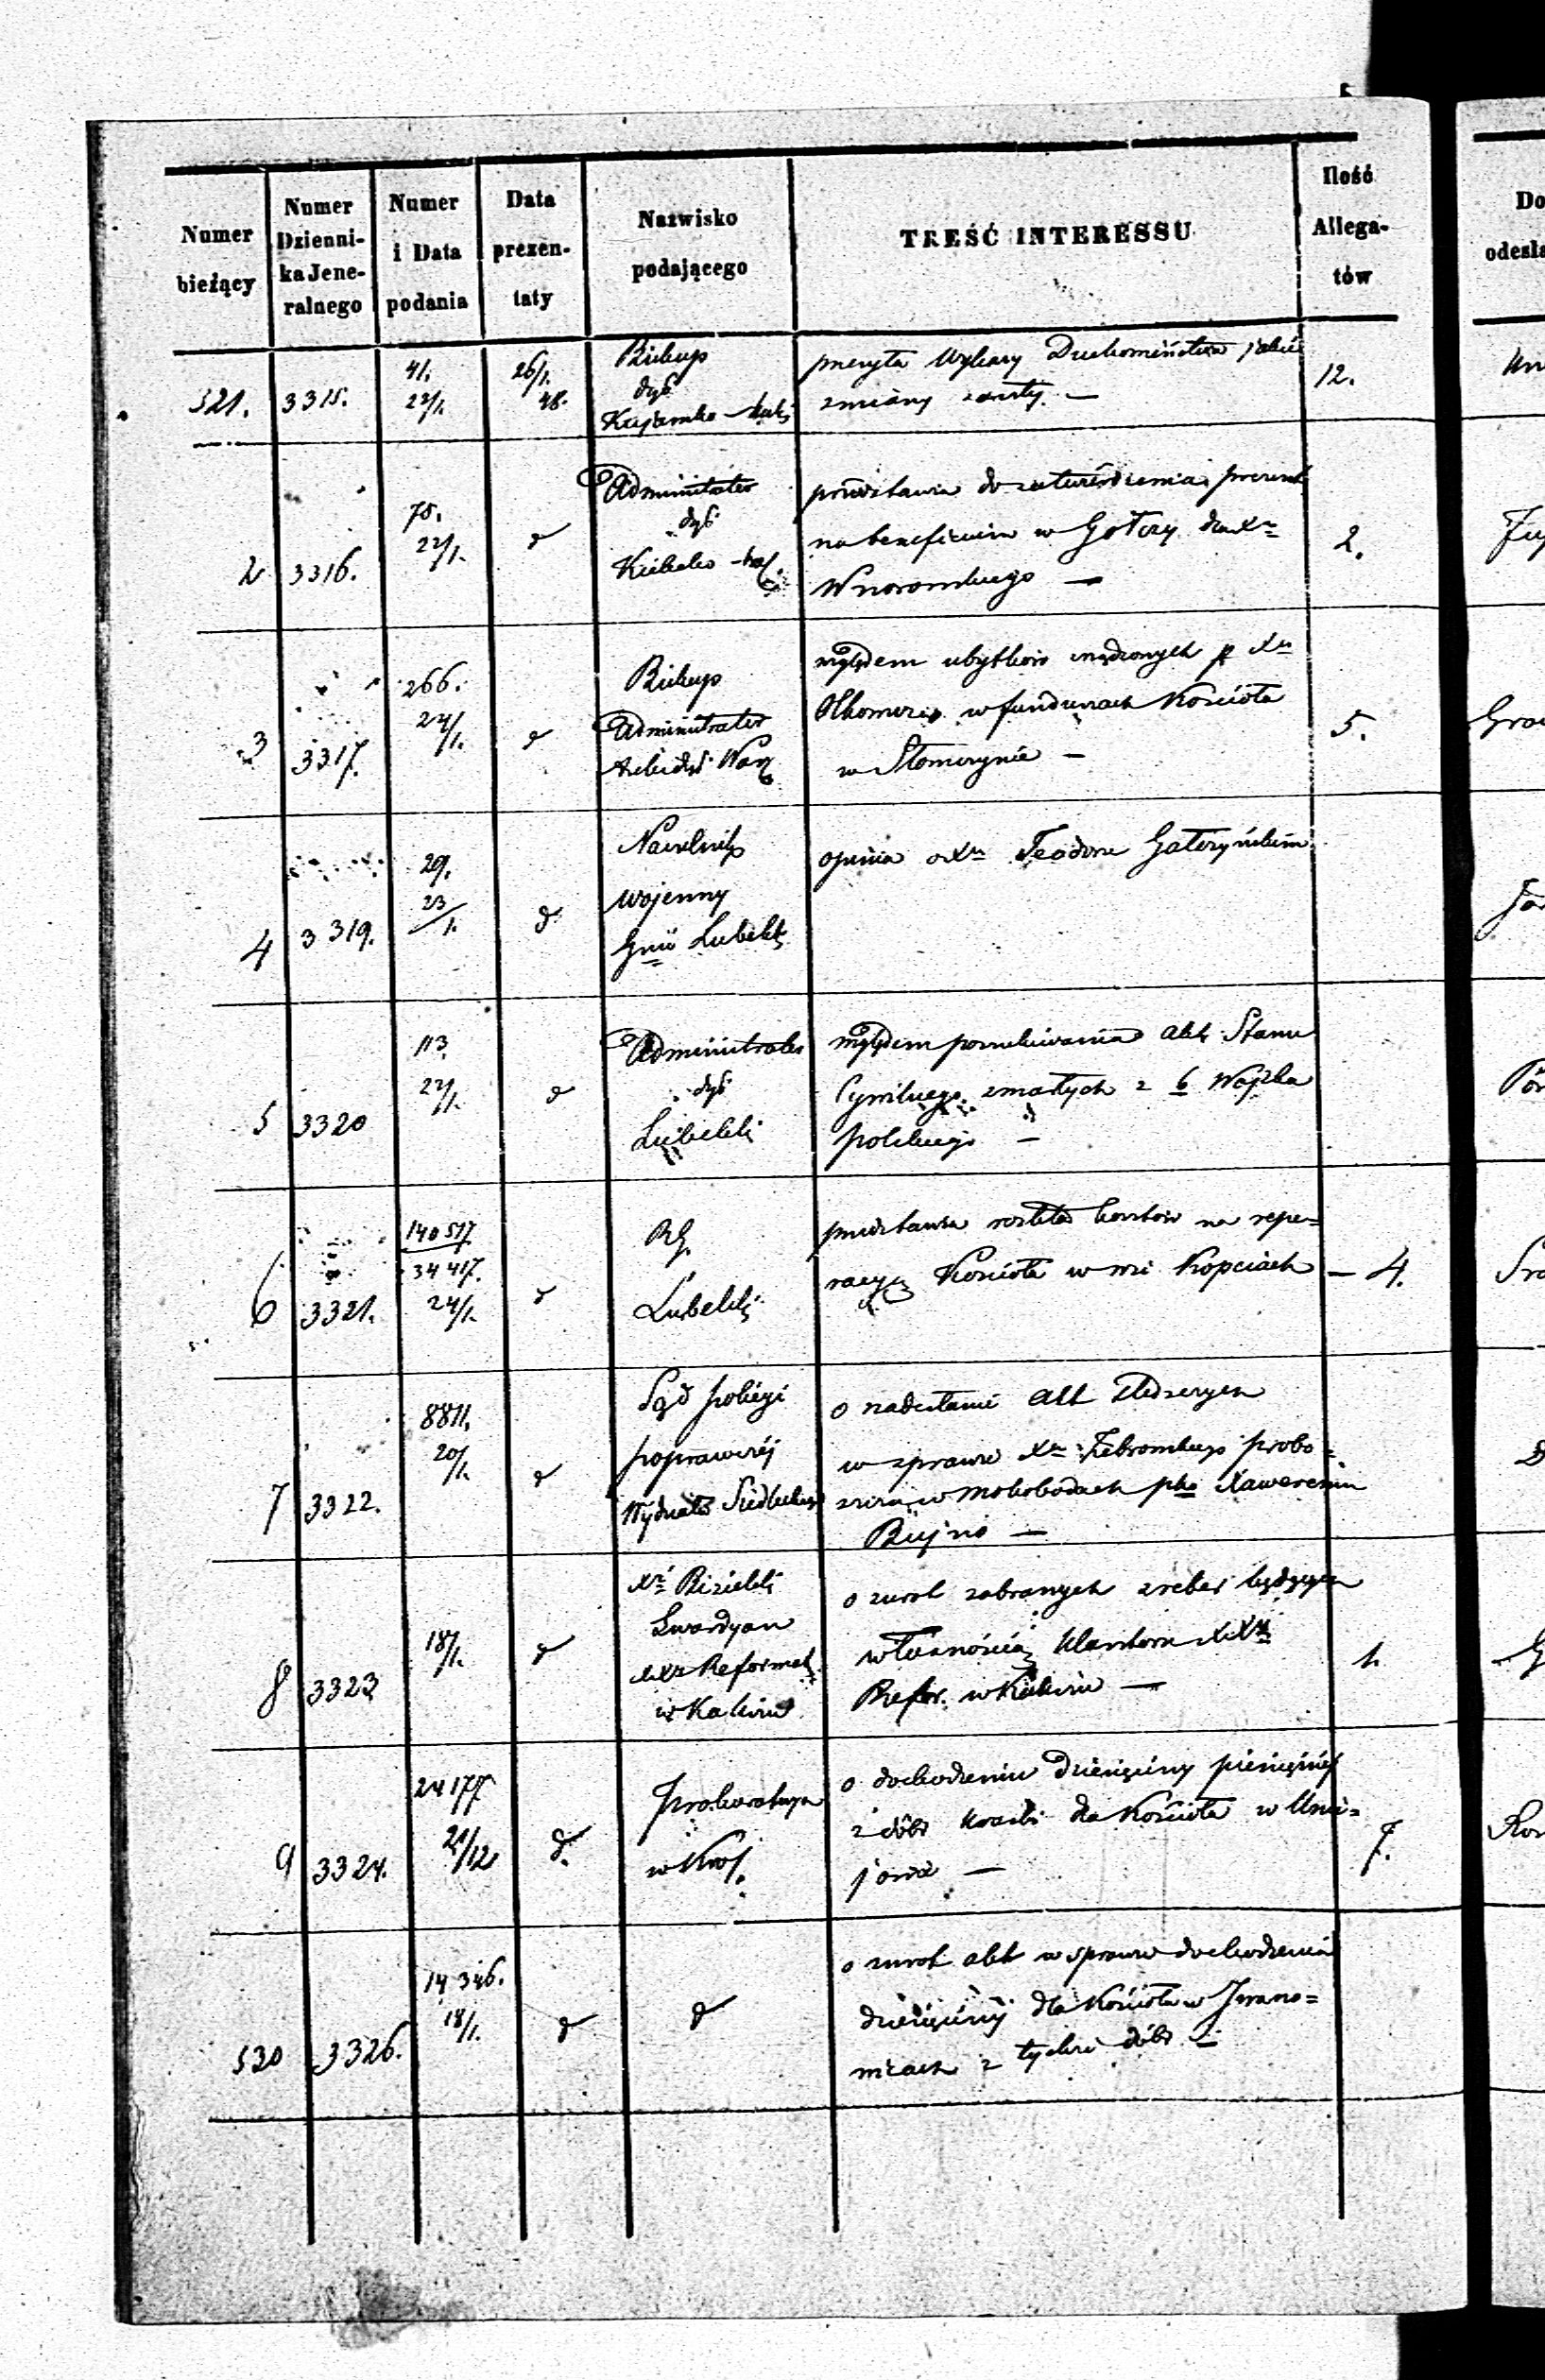 Numer bieżący | Numer Dziennika Jeneralnego | Numer i Data podania | Data prezentaty | Nazwisko podającego | TREŚĆ INTERESSU | Ilość Allegatów | Do odesła
521. | 3315. | 41. 22/1. | 26/1. 48. | Biskup
dyż
Kujawsko-Kal: | przesyła Wykazy Duchowieństwa jakie
zmiany zaszły. — | 12.
2 | 3316. | 75. 22/1. | d | Administrator
dyż
Kielecko-Kra. | przedstawia do zatwierdzenia prezent.
na beneficium w Gołczy dla Xa
Wnorowskiego — | 2.
3 | 3317. | 266. 24/1. | d | Biskup
Administrator
Archidyż Warsz | względem ubytków zrządzonych p Xa
w funduszach Kościoła
w Słomczynie — | 5.
4 | 3319. | 29. 23/1. | d | Naczelnik
wojenny
Gnii Lubelsk | opinia o Xu Teodorze Gałczyńskim
5 | 3320 | 113. 22/1. | d | Administrator
dyż
Lubelski | względem poszukiwania akt Stanu
Cywilnego zmarłych z b Wojska
polskiego —
6 | 3321. | 140517. 34417. 24/1. | d | RG.
Lubelski | przedstawia rozkład kosztów na repe=
racyą Kościoła w wsi Kopciach | — 4.
7 | 3322. | 8811. 20/1. | d | Sąd policyi
poprawczéj
Wydziału Siedleckiego | o nadesłanie akt śledczych
w sprawie Xa Zebrowskiego probo=
szcza w Mokobodach pko Xaweremu
Bujno —
8 | 3323 | 18/1. | d | Xdz Bizielski
Gwardyan
XXz Reformat
w Kaliszu | o zwrot zabranych sreber będących
własnością Klasztoru XX
Refor. w Kaliszu — | 1.
9 | 3324. | 24177 21/12 | d. | Prokuratorya
w Król. | o dochodzeniu Dziesięciny pieniężnéj
z dóbr dla Kościoła w Unie=
jowie — | 7.
530 | 3326. | 14346. 18/1. | d | d | o zwrot akt w sprawie dochodzenia
dziesięciny dla Kościoła w Iwano=
wicach z tychże dóbr —